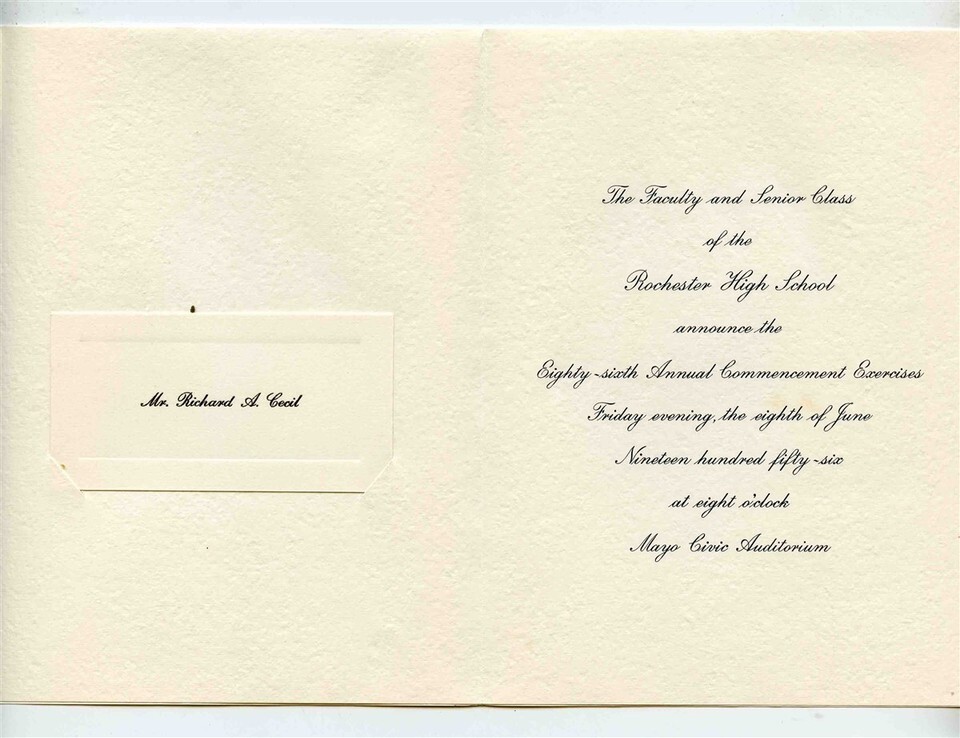 Mr. Richard A. Cecil
The Faculty and Senior Class
of the
Rochester High School
announce the
Eighty-sixth Annual Commencement Exercises
Friday evening, the eighth of June
Nineteen hundred fifty-six
at eight o'clock
Mayo Civic Auditorium